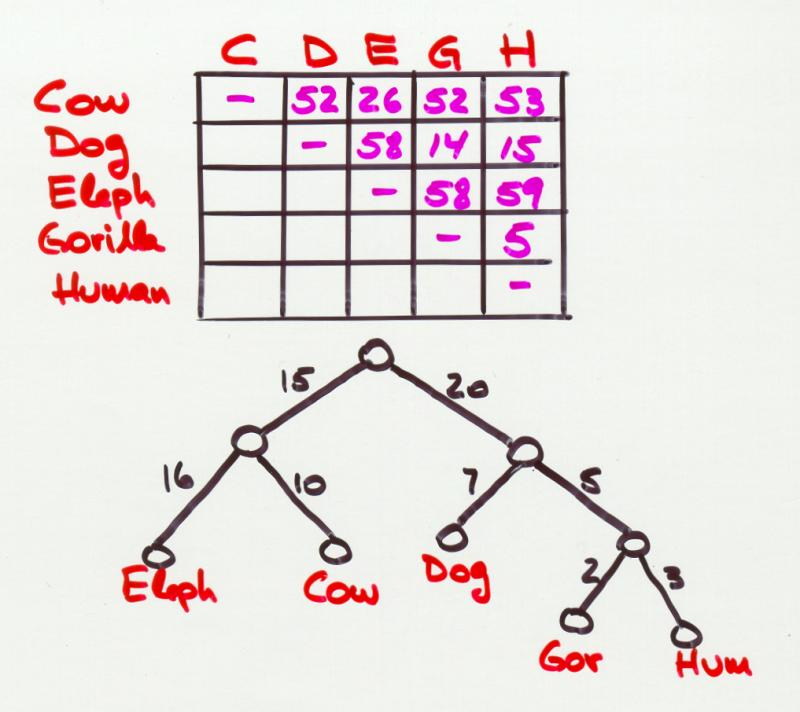 C D E G H
Cow - 52 26 52 53
Dog - 58 14 15
Eleph - 58 59
Gorilla - 5
Human -
15 20
16 10 7 5
Eleph Cow Dog 2 3
Gor Hum